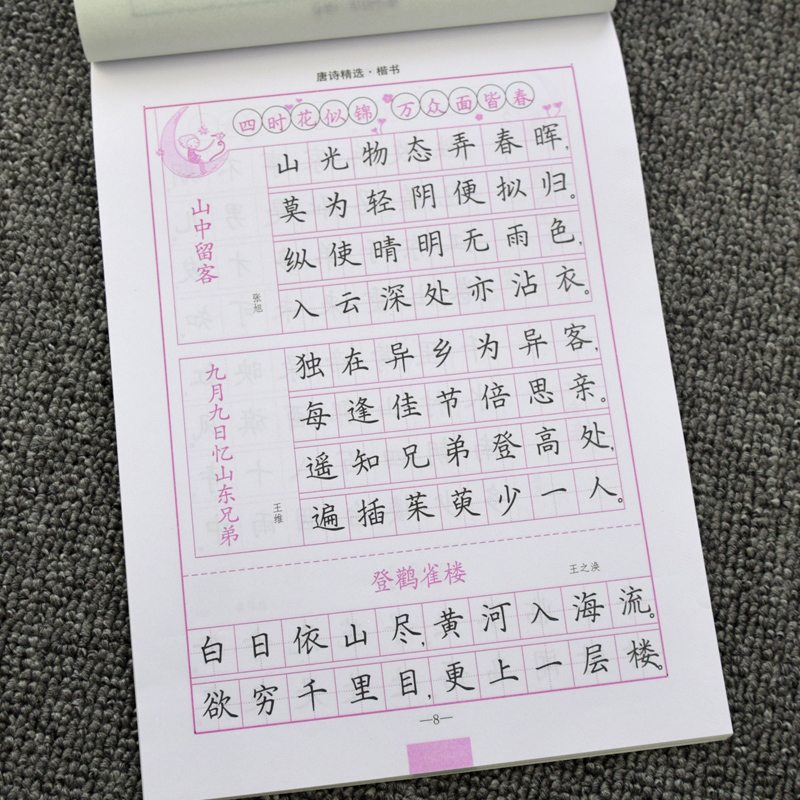 唐诗精选·楷书
四时花似锦 万众面皆春
山中留客
张旭
山光物态弄春晖,
莫为轻阴便拟归。
纵使晴明无雨色,
入云深处亦沾衣。
九月九日忆山东兄弟
王维
独在异乡为异客,
每逢佳节倍思亲。
遥知兄弟登高处,
遍插茱萸少一人。
登鹳雀楼
王之涣
白日依山尽,黄河入海流。
欲穷千里目,更上一层楼。
—8—